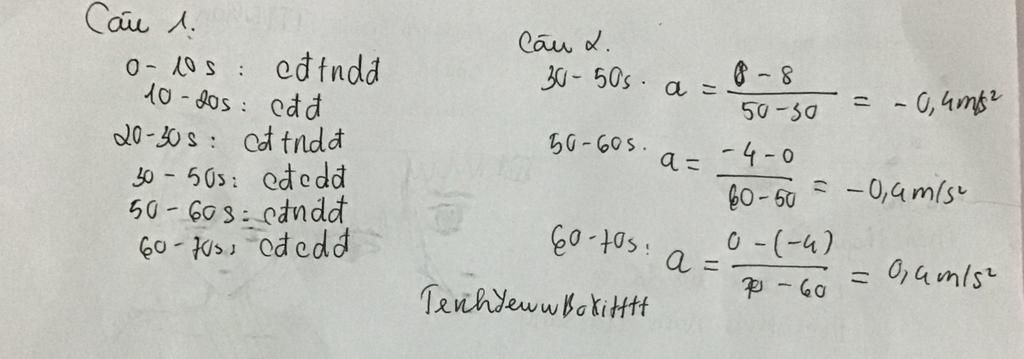 Câu 1.
0-10s: cđtndđ
10-20s: cđđ
20-30s: cđtndđ
30-50s: cđcdđ
50-60s: cđndđ
60-70s: cđcdđ
Câu 2.
30-50s. a = \frac{0-8}{50-30} = -0,4m/s²
50-60s. a = \frac{-4-0}{60-50} = -0,4m/s²
60-70s: a = \frac{0-(-4)}{70-60} = 0,4m/s²